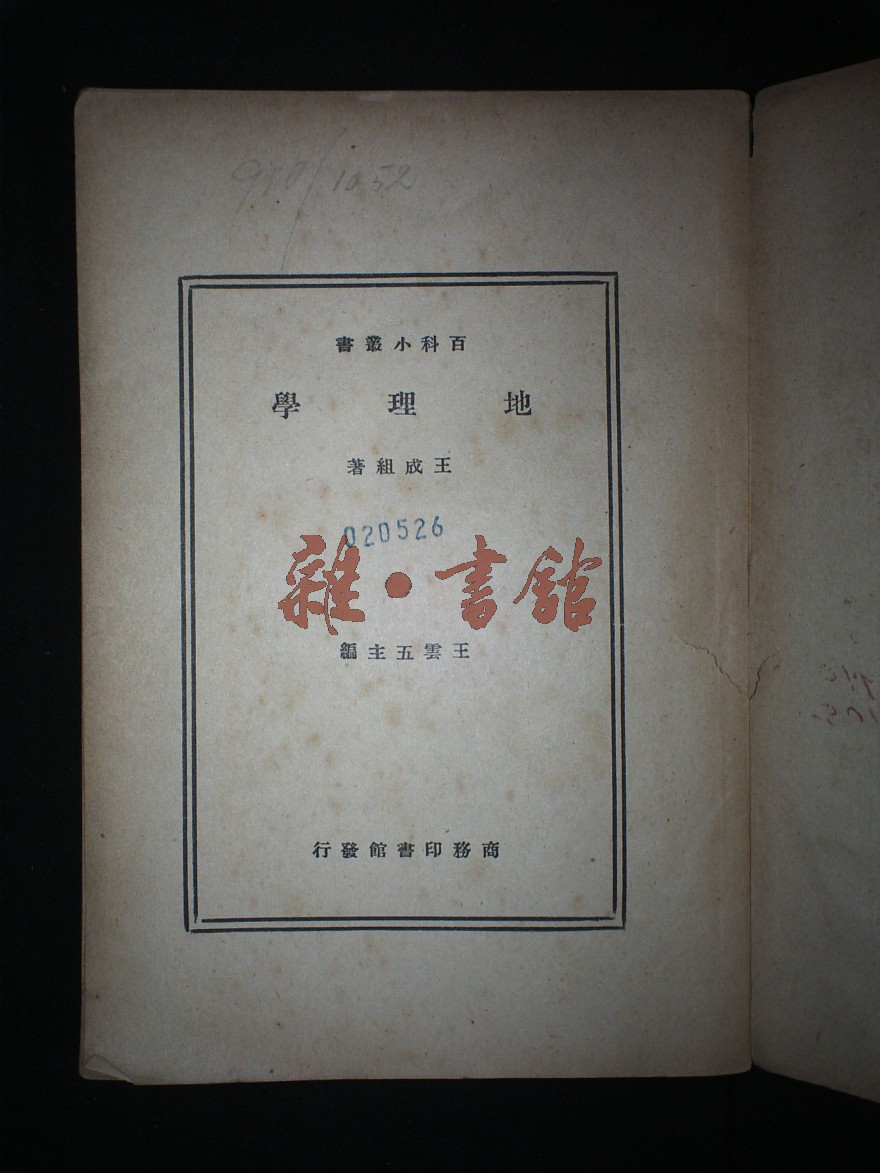 910/1052
百科小叢書
地理學
王成組著
020526
雜·書館
王雲五主編
商務印書館發行